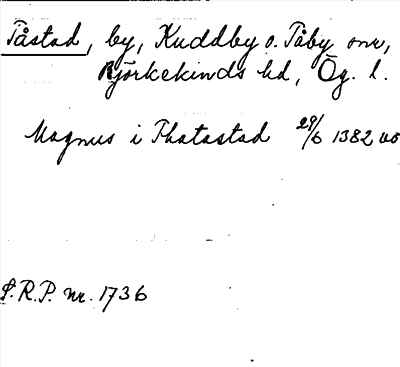 Tåstad, by, Kuddby o. Tåby snr,
Björkekinds hd, Ög. l.
Magnus i Thatastad 29/6 1382 vo
S.R.P. nr. 1736